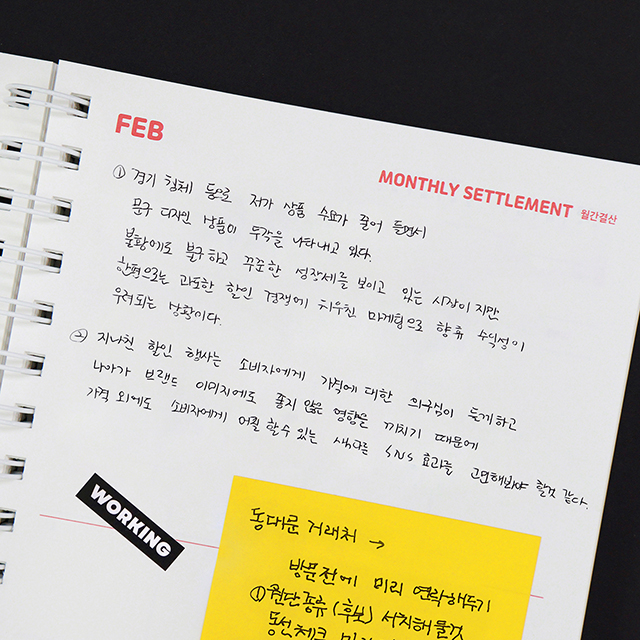 FEB
MONTHLY SETTLEMENT 월간결산
① 경기 침체 등으로 저가 상품 수요가 줄어 들면서
문구 디자인 상품이 두각을 나타내고 있다.
불황에도 불구하고 꾸준한 성장세를 보이고 있는 시장이지만
한편으로는 과도한 할인 경쟁에 치우친 마케팅으로 향후 수익성이
우려되는 상황이다.
② 지나친 할인 행사는 소비자에게 가격에 대한 의구심이 들게하고
나아가 브랜드 이미지에도 좋지 않은 영향을 끼치기 때문에
가격 외에도 소비자에게 어필 할수 있는 색다른 SNS 효과를 고민해봐야 할것 같다.
WORKING
동대문 거래처 →
방문전에 미리 연락해두기
① 원단종류 (후보) 서치해볼것
동선체크